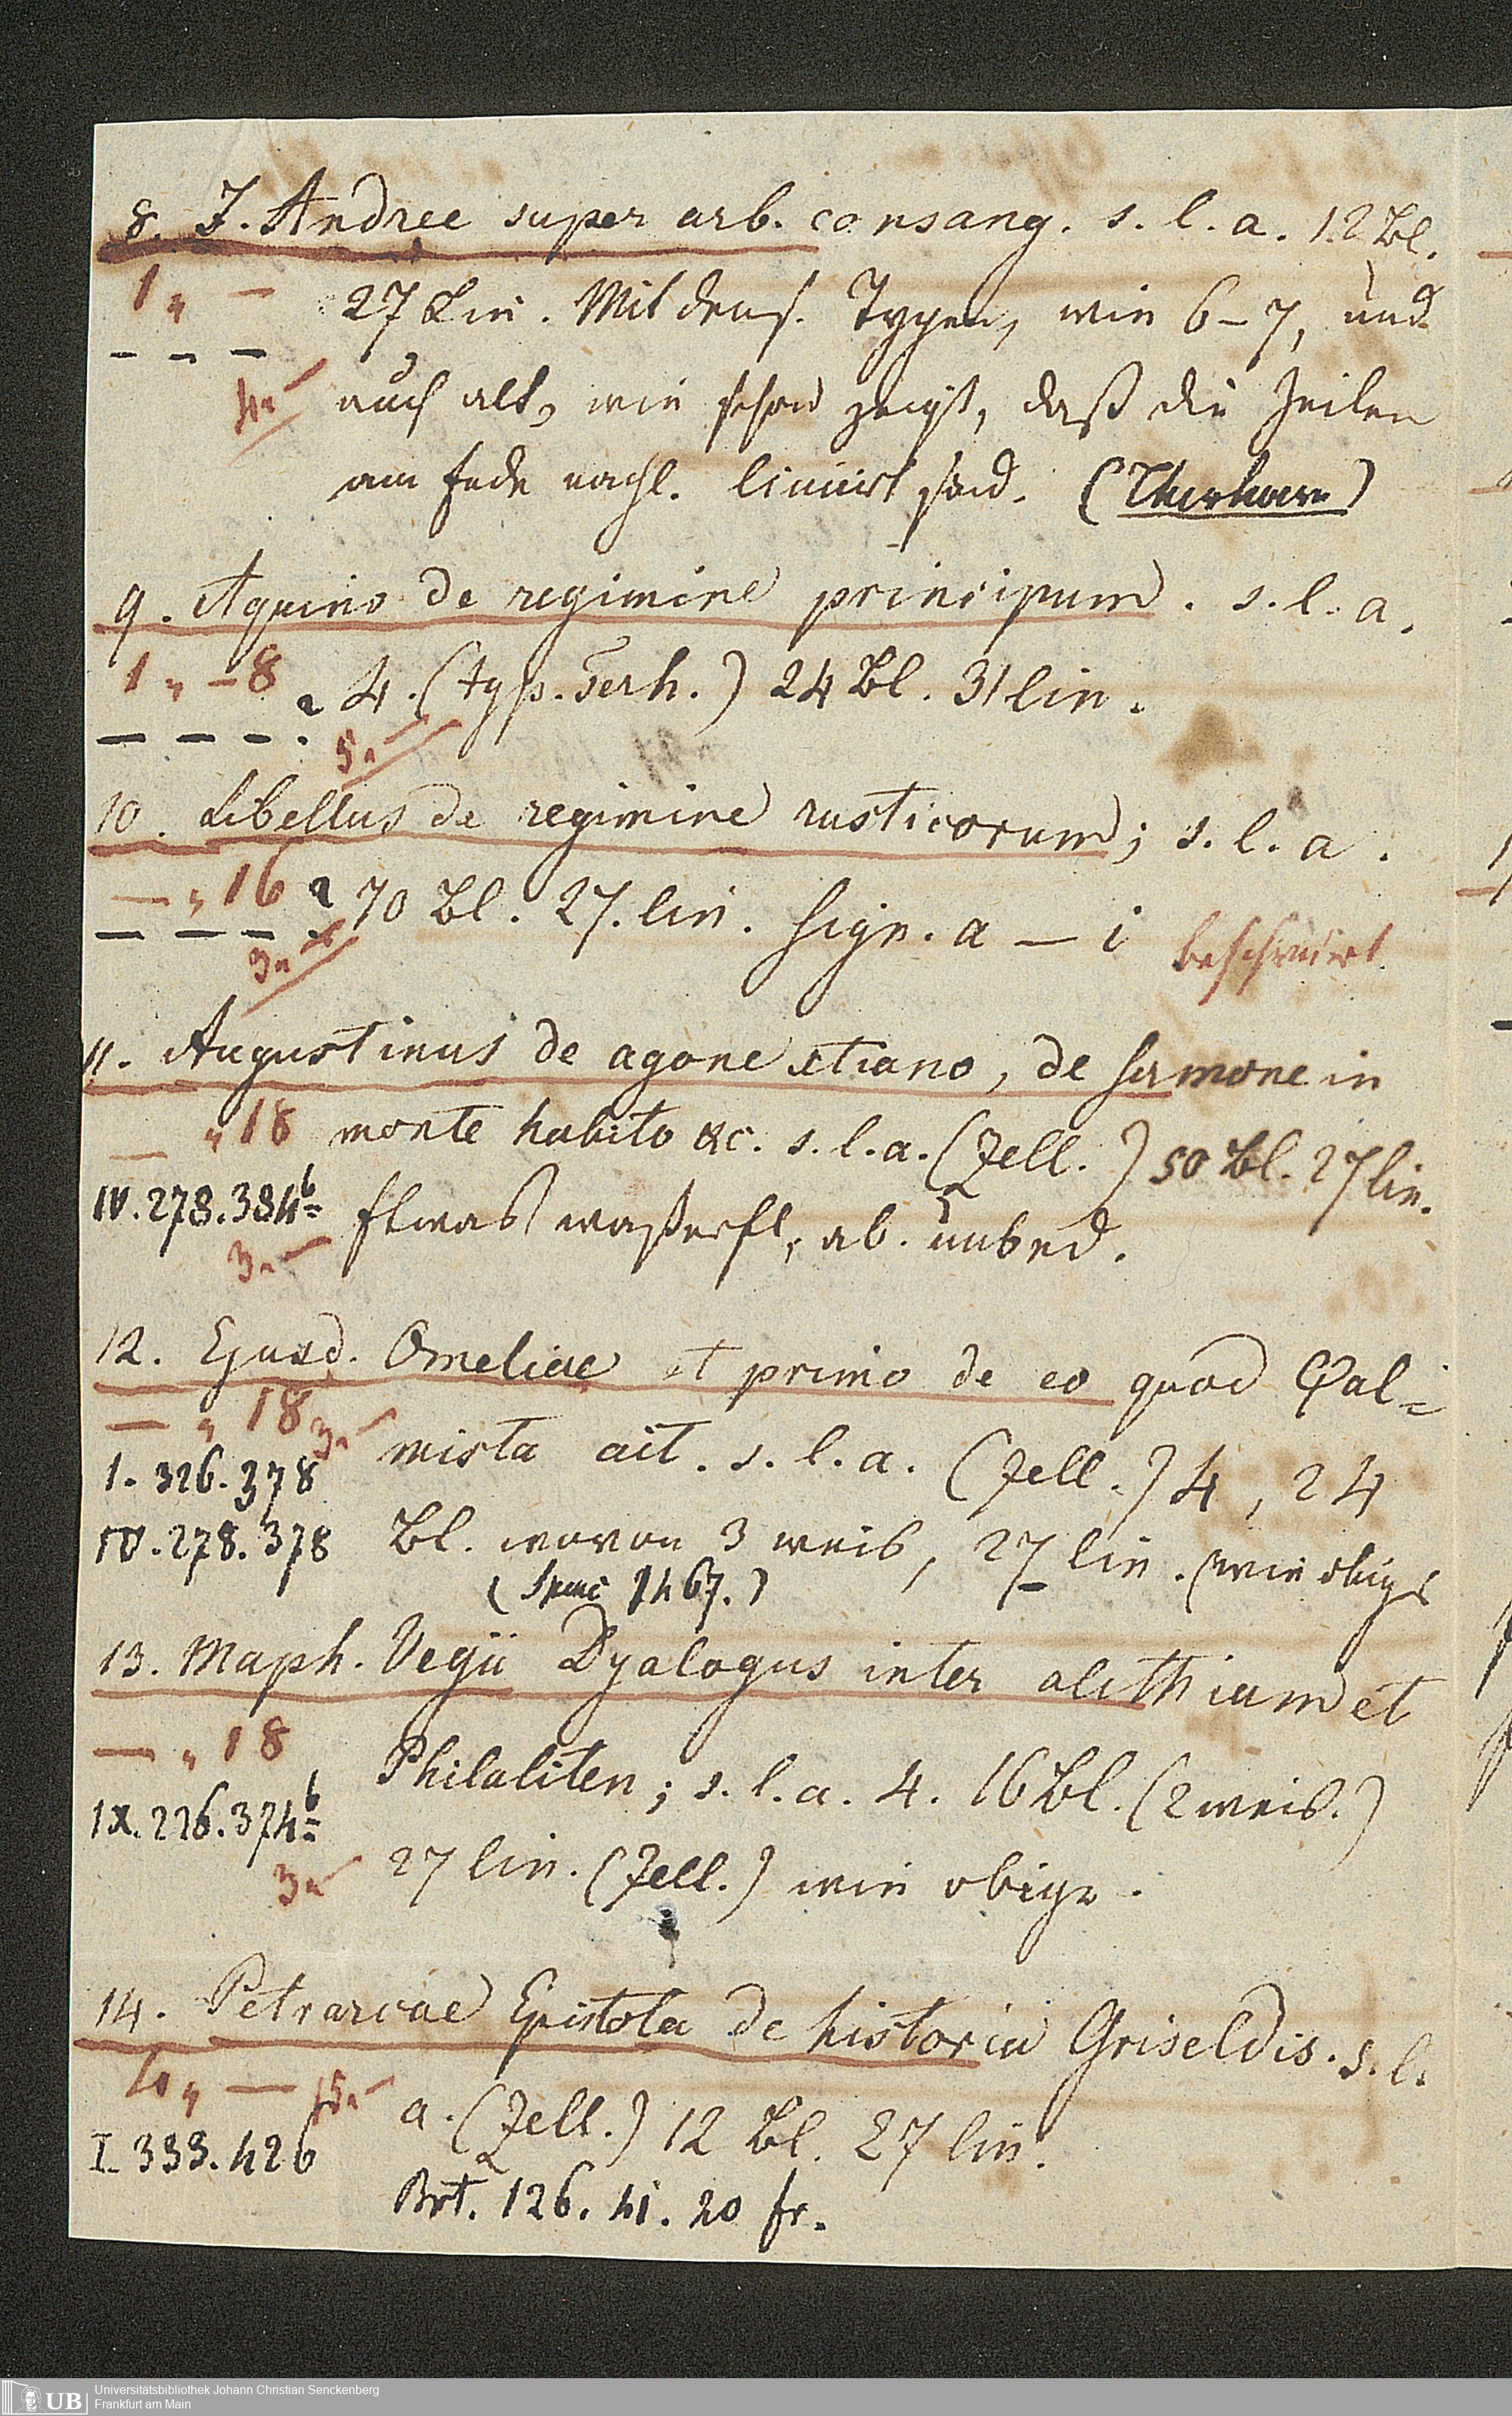 8. J. Andree super arb. consang. s. l. a. 12 Bl.
1 „ — 27 Lin. Mit dens. Typen, wie 6–7, und
4 „ — auch alt, wie schon zeigt, daß die Zeilen
am Ende nachl. liniirt sind.
9. Aquino de regimine principum. s. l. a.
1 „ – 8 4. (typ. Terh.) 24 Bl. 31 lin.
5 „ —
10. Libellus de regimine rusticorum; s. l. a.
— „ 16 70 Bl. 27. lin. Sign. a — i beschmiert
3 „ —
11. Augustinus de agone xtiano, de sermone in
— „ 18 monte habito &c. s. l. a. (Zell.) 50 Bl. 27 lin.
IV. 278. 384b Etwas wasserfl., ab. unbed.
3 „ —
12. Ejusd. Omeliae et primo de eo quod Psal=
— „ 18 3 „ — mista ait. s. l. a. (Zell.) 4, 24
I. 326. 378
IV. 278. 378 Bl. wovon 3 weis, 27 lin. (wie obige
1467.)
13. Maph. Vegii Dyalogus inter alithiam et
— „ 18 Philaliten; s. l. a. 4. 16 Bl. (2 weis.)
IX. 226. 374b
3 „ — 27 lin. (Zell.) wie obige.
14. Petrarcae Epistola de historia Griseldis. s. l.
a. (Zell.) 12 Bl. 27 lin.
I. 333. 426
Brt. 126. 41. 20 fr.
UB Universitätsbibliothek Johann Christian Senckenberg
Frankfurt am Main